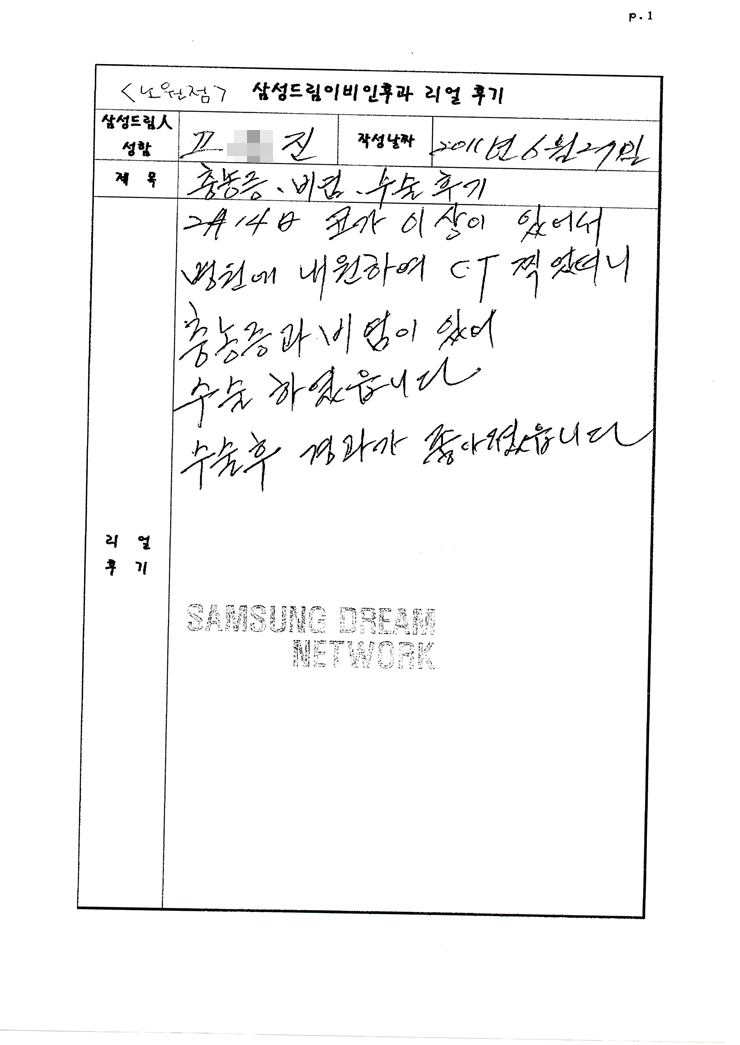 p.1
<노원점> 삼성드림이비인후과 리얼 후기
삼성드림人 성함 고 진 작성날짜 2011년 6월 27일
제 목 충농증、비염、수술후기
2月14日 코가 이상이 있어서
병원에 내원하여 CT 찍었더니
충농증과 비염이 있어
수술 하였읍니다
수술후 경과가 좋아졌읍니다
리 얼
후 기
SAMSUNG DREAM
NETWORK